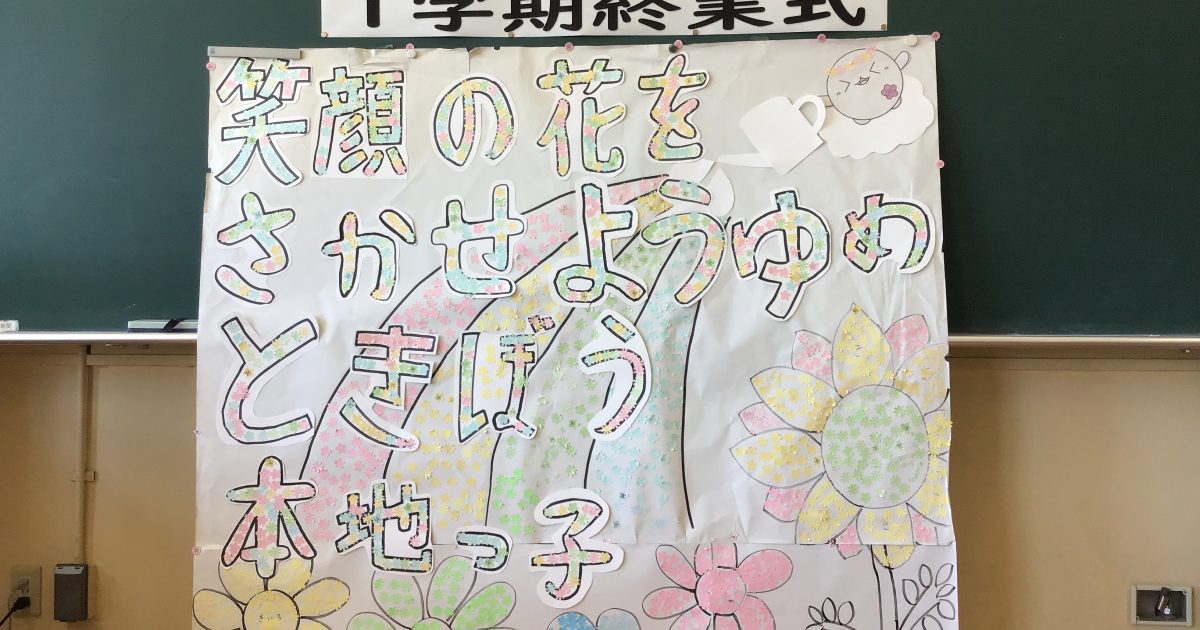 学期終業式
笑顔の花を
さかせようゆめ
ときぼう
本地っ子